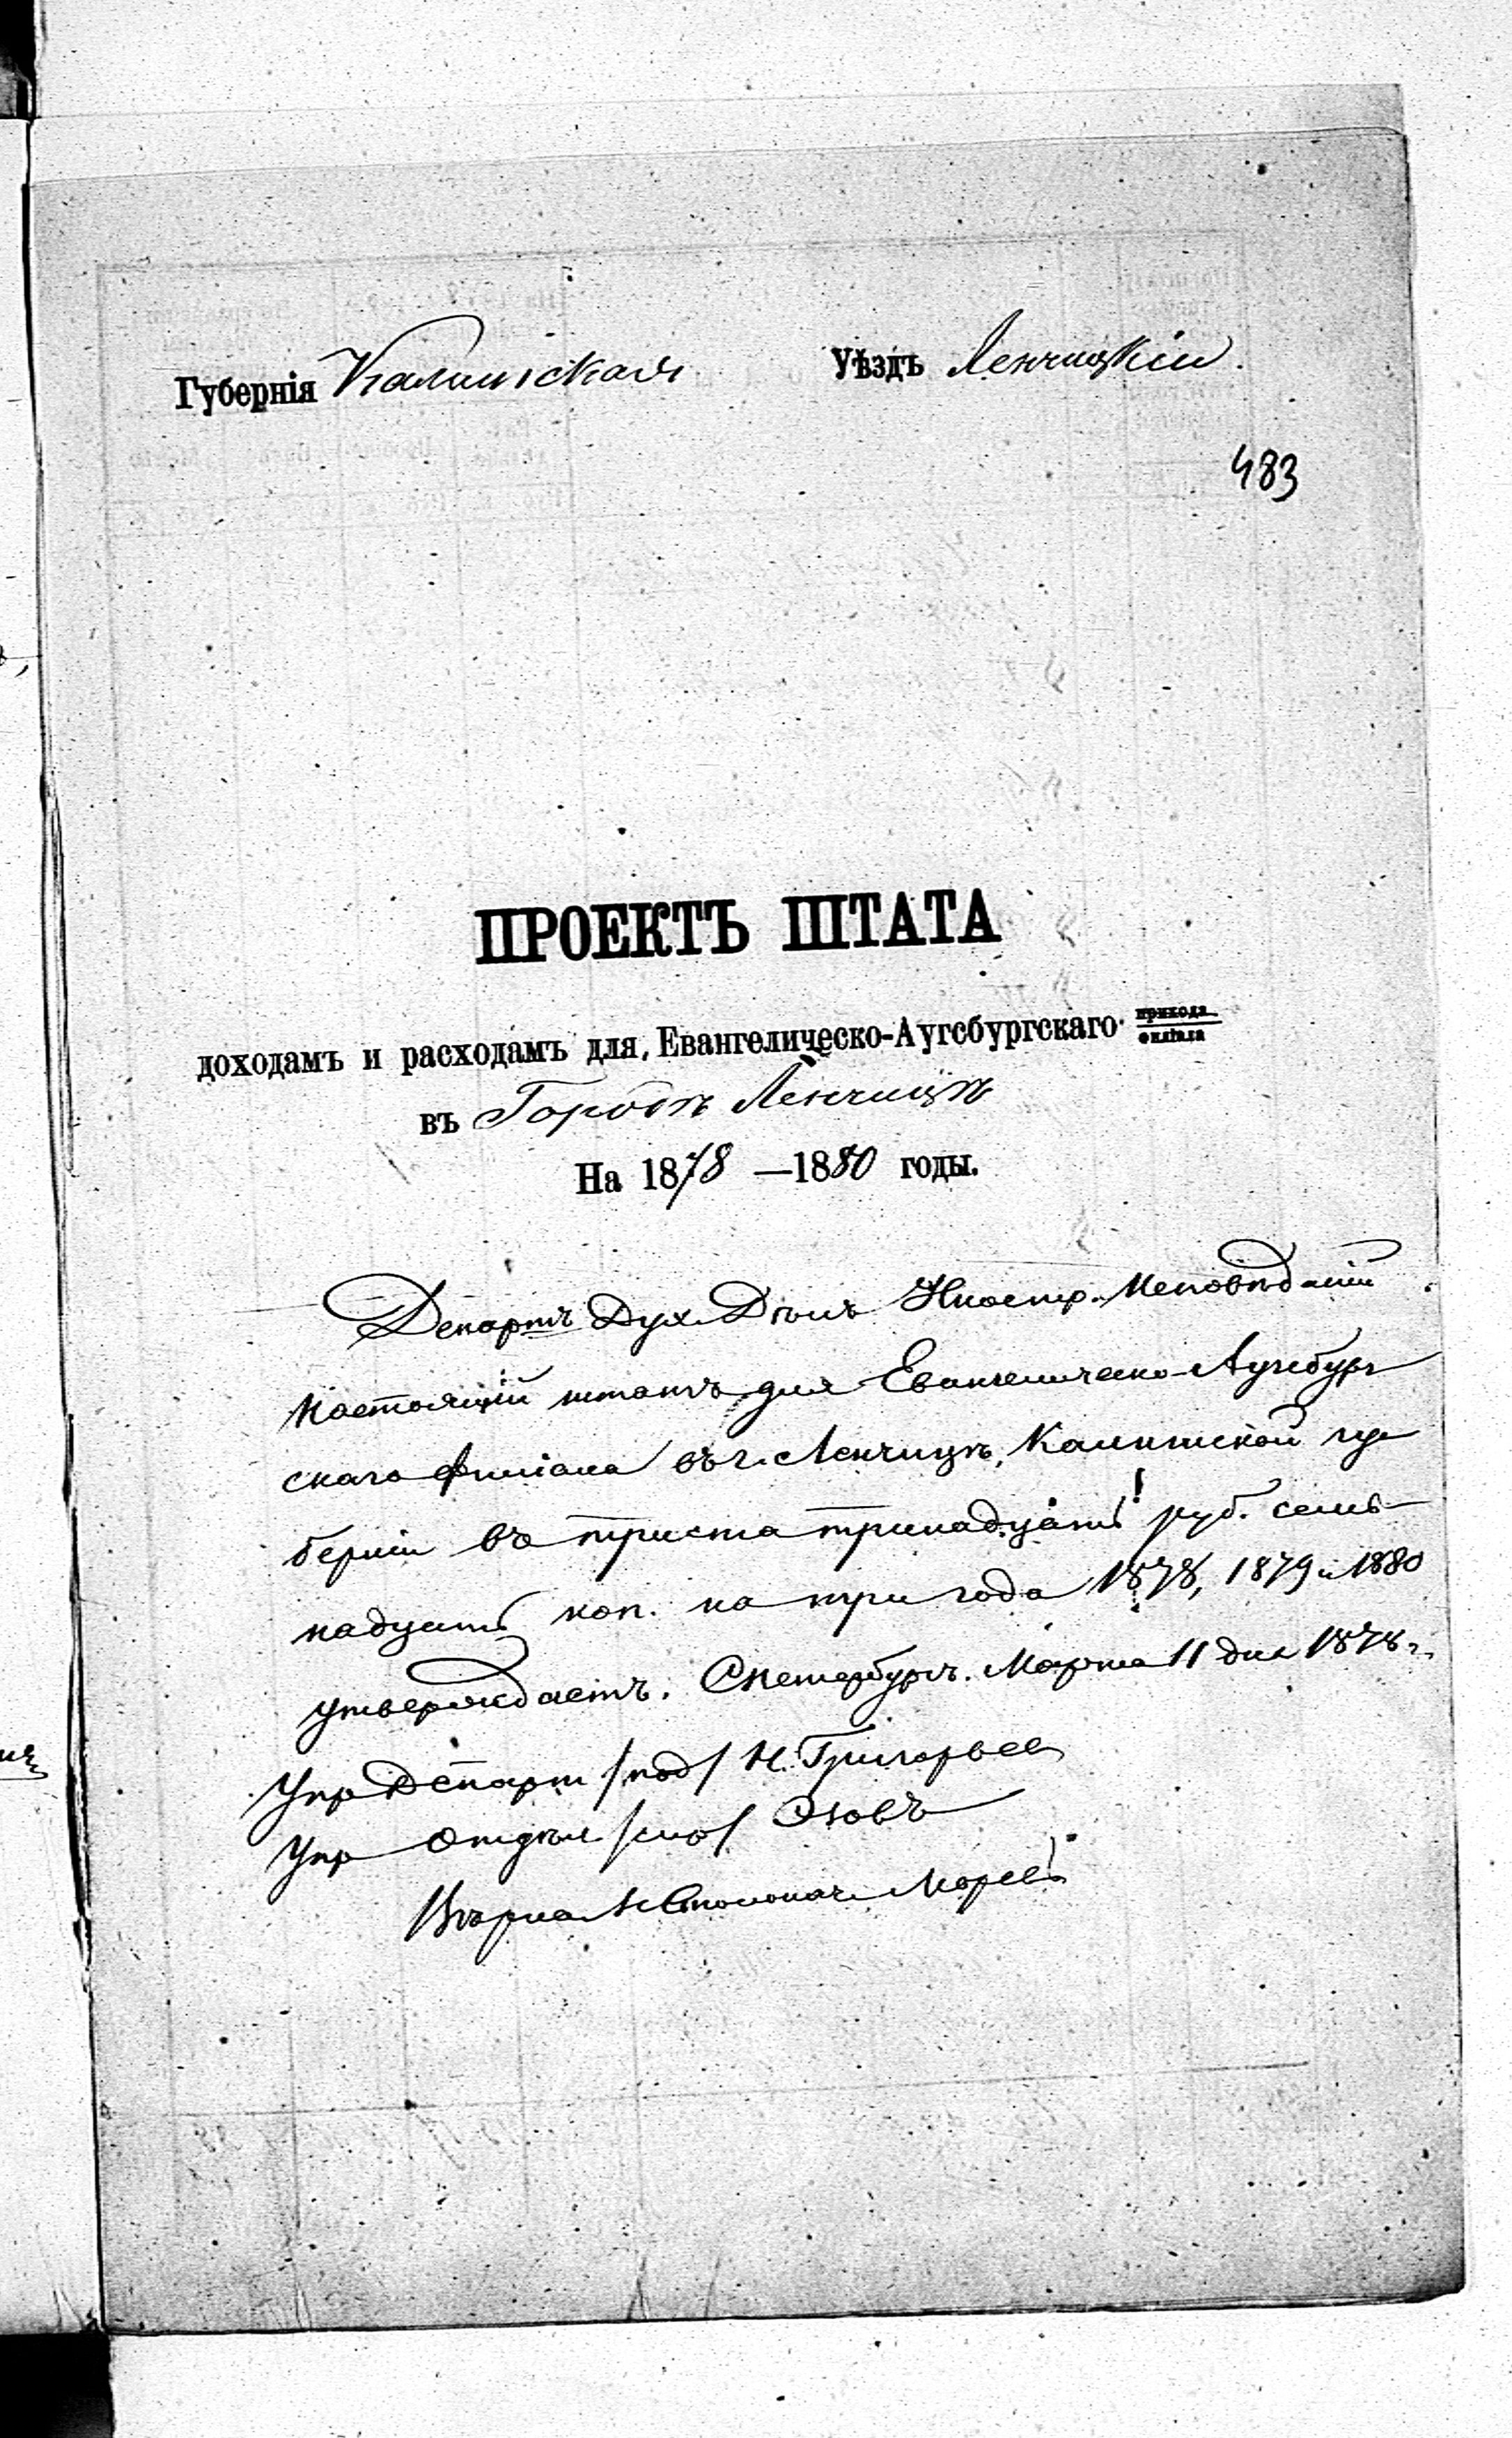 Губернія Калишская Уѣздъ Ленчицкій.
483
ПРОЕКТЪ ШТАТА
доходамъ и расходамъ для Евангелическо-Аугсбургскаго прихода
филіала
въ Городѣ Ленчицѣ
На 1878 —1880 годы.
Департъ Дух. Дѣлъ Иностр. Исповѣданій
настоящій штатъ для Евангелическо-Аугсбург
скаго филіала въ г. Ленчицѣ, Калишской гу
берніи въ триста тринадцать руб. семь
надцать коп. на три года 1878, 1879 и 1880
утверждаетъ. СПетербургъ. Марта 11 дня 1878 г.
Упр Департ /под/ Н. Григорьев
Упр Отдѣл
Вѣрно: Столонач. Морев